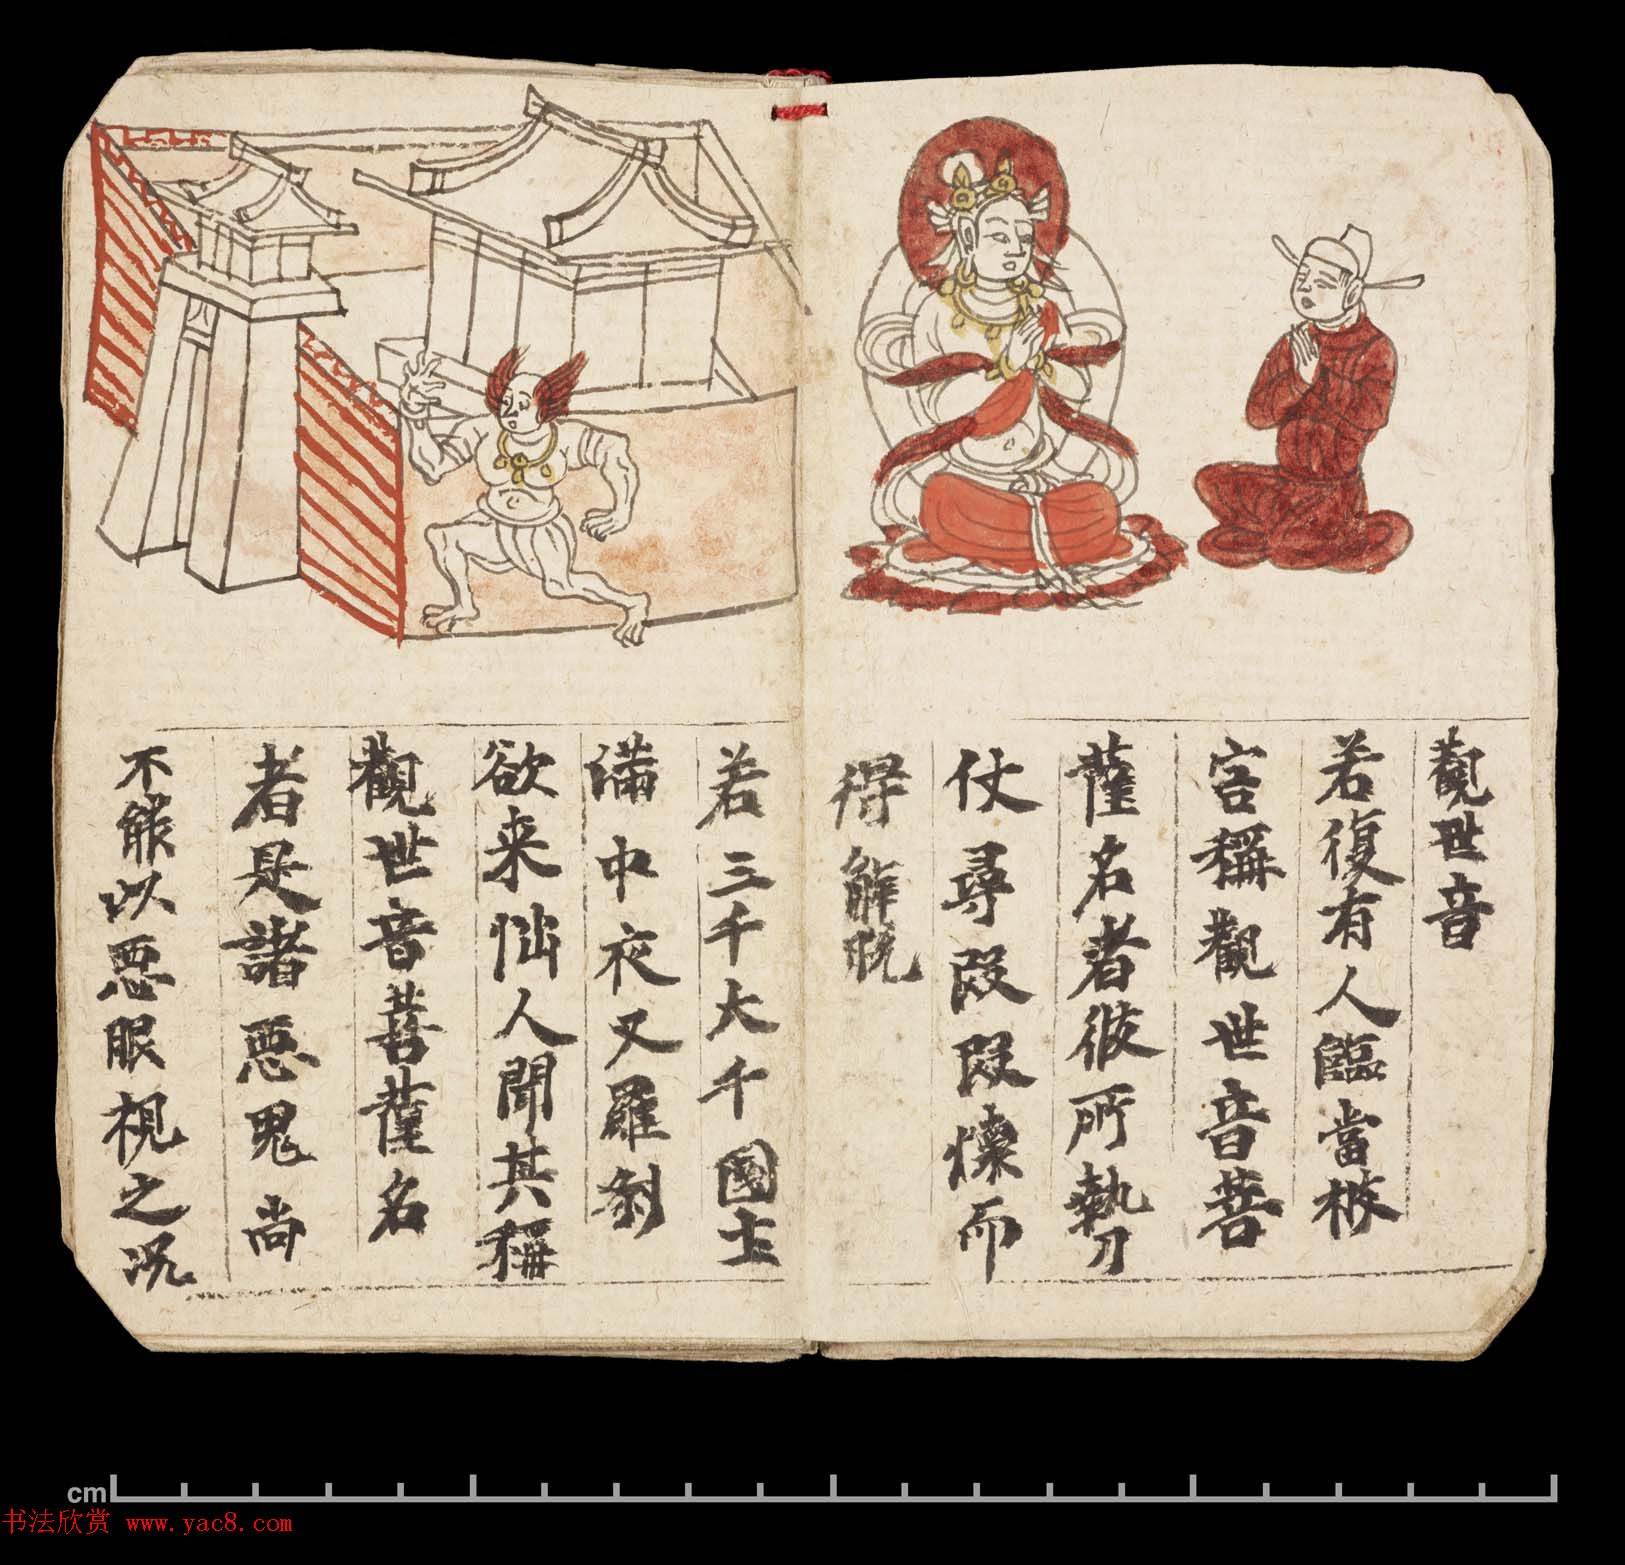 觀世音
若復有人臨當被
害稱觀世音菩
薩名者彼所執刀
仗尋段段壞而
得解脱
若三千大千國土
滿中夜叉羅剎
欲来惱人聞其稱
觀世音菩薩名
者是諸惡鬼尚
不能以惡眼視之況
cm
书法欣赏 www.yac8.com